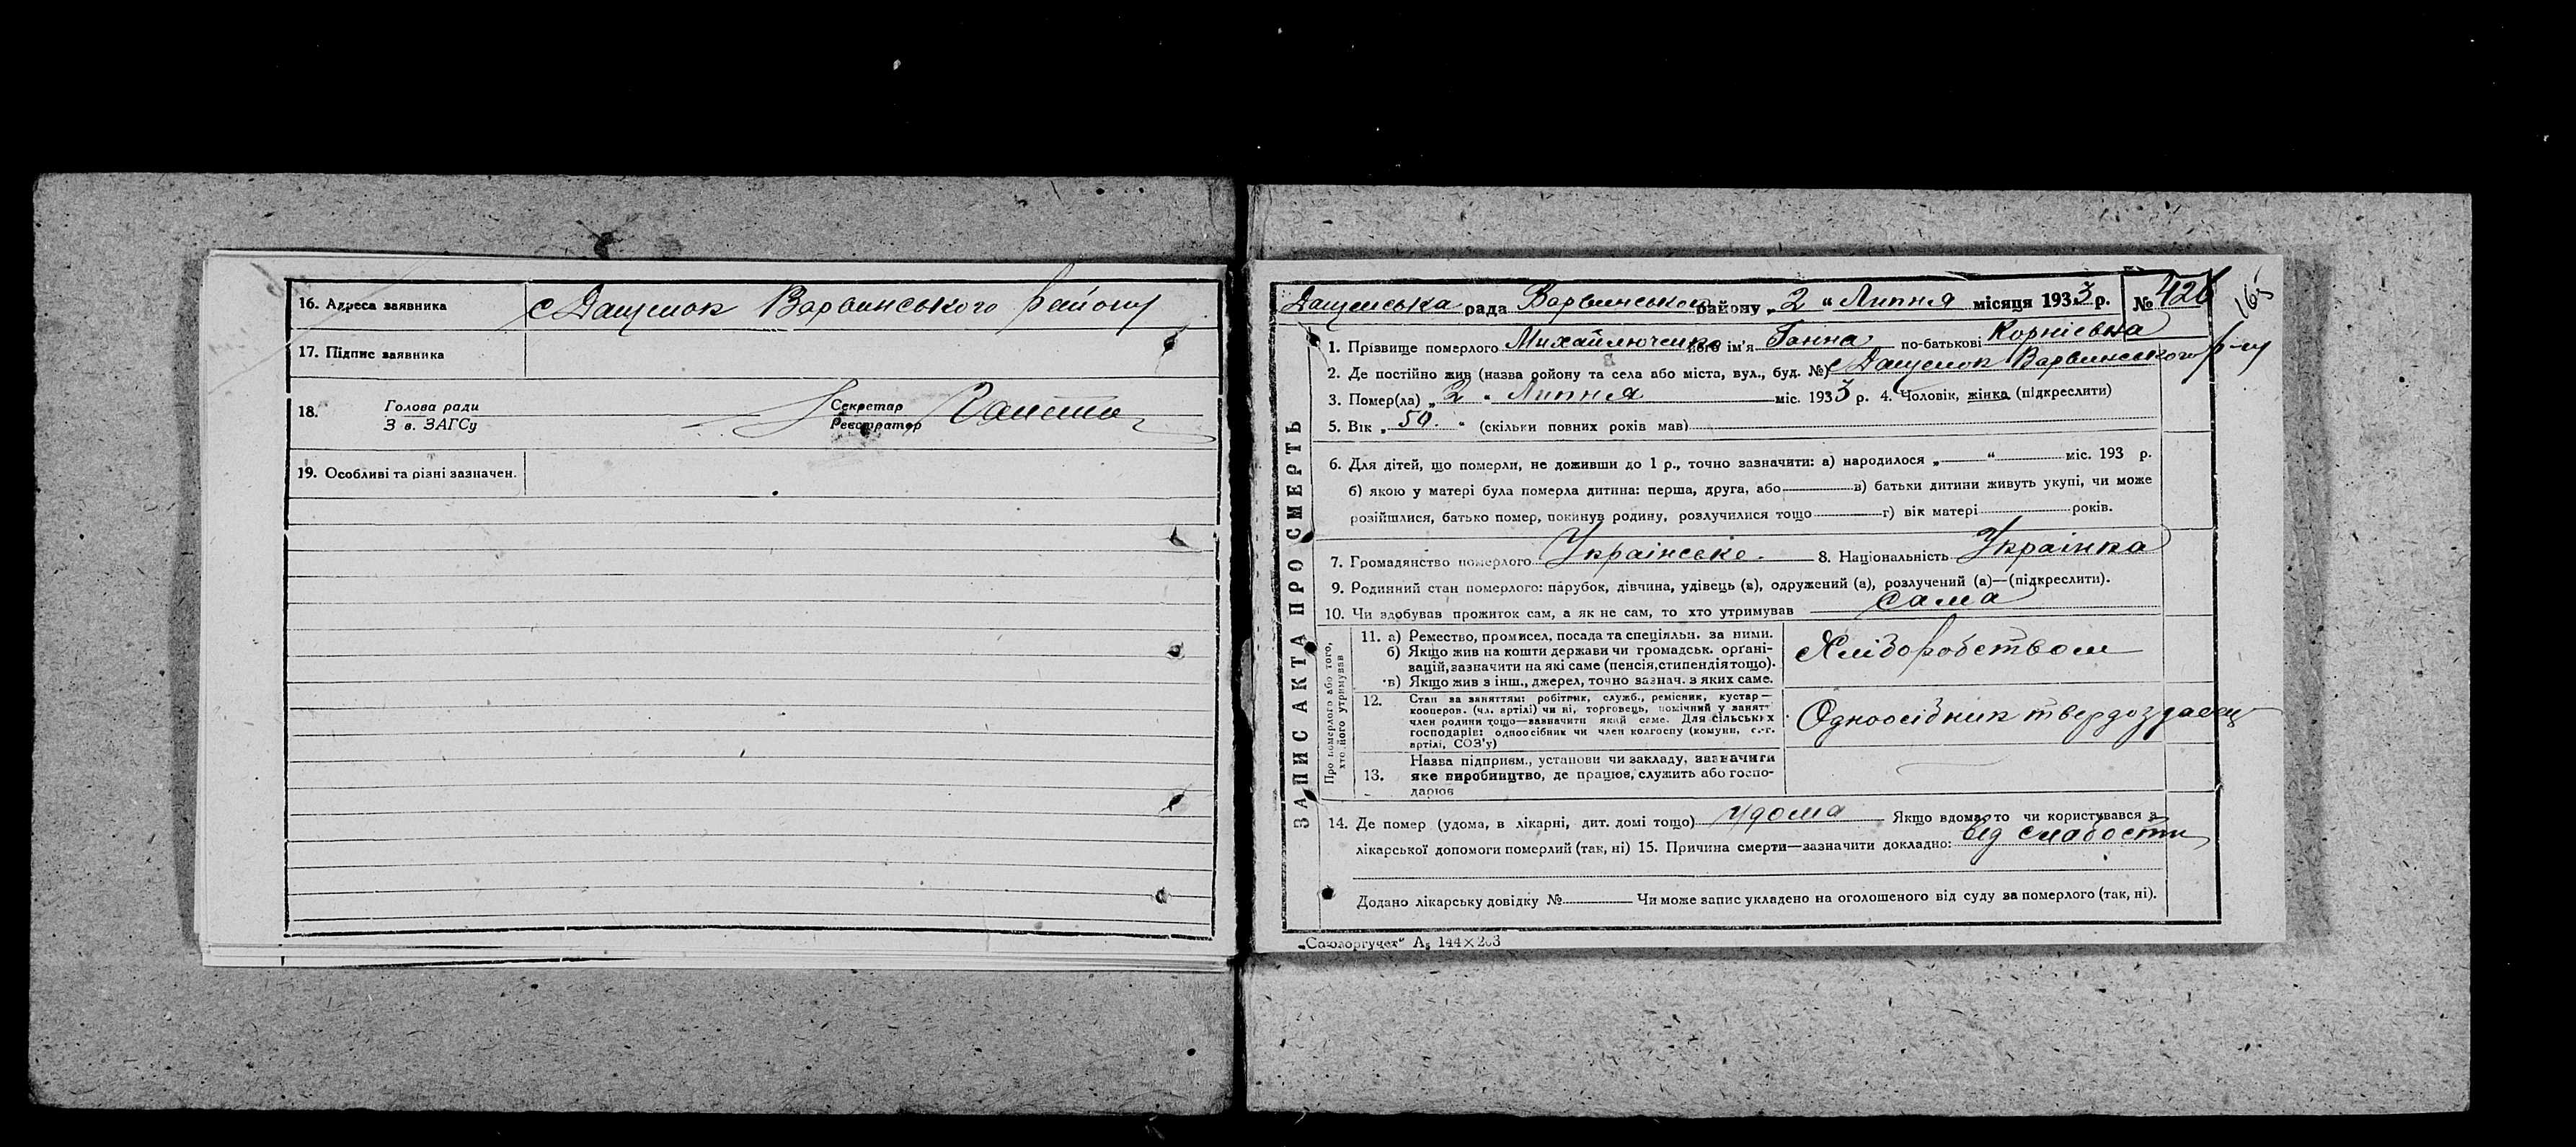 16. Адреса заявника с Дащенок Варвинського району
17. Підпис заявника
18. Голова ради Секретар
З в. ЗАГСу Реєстратор
19. Особливі та різні зазначен.
Дащенська рада Варвинського району „2“ Липня місяця 1933 р. № 426
165
ЗАПИС АКТА ПРО СМЕРТЬ
1. Прізвище померлого Михайлюченко його ім'я Ганна по-батькові Корніевна
2. Де постійно жив (назва району та села або міста, вул., буд. №) с Дащенок Варвинського р-ну
3. Помер(ла) „2“ Липня міс. 1933 р. 4. Чоловік, жінка (підкреслити)
5. Вік „50.“ (скільки повних років мав)
6. Для дітей, що померли, не доживши до 1 р., точно зазначити: а) народилося „ “ міс. 193 р.
б) якою у матері була померла дитина: перша, друга, або в) батьки дитини живуть укупі, чи може
розійшлися, батько помер, покинув родину, розлучилися тощо г) вік матері років.
7. Громадянство померлого Українське. 8. Національність Українка
9. Родинний стан померлого: парубок, дівчина, удівець (в), одружений (а), розлучений (а)—(підкреслити).
10. Чи здобував прожиток сам, а як не сам, то хто утримував сама
Про померлого або того,
хто його утримував
11. а) Ремество, промисел, посада та спеціяльн. за ними.
б) Якщо жив на кошти держави чи громадськ. орґані-
зацій, зазначити на які саме (пенсія, стипендія тощо).
в) Якщо жив з інш., джерел, точно зазнач. з яких саме.
Хліборобством
12. Стан за заняттям: робітник, служб., ремісник, кустар—
кооперов. (чл. артілі) чи ні, торговець, помічний у занят-
член родини тощо—зазначити який саме. Для сільських
господарів: одноосібник чи член колгоспу (комуни, с.-г.
артілі, СОЗ'у)
Одноосібник твердоздавец
13. Назва підприєм., установи чи закладу, зазначити
яке виробництво, де працює, служить або госпо-
дарює
14. Де помер (удома, в лікарні, дит. домі тощо) удома Якщо вдома, то чи користувався з
лікарської допомоги померлий (так, ні) 15. Причина смерти—зазначити докладно: від слабости
Додано лікарську довідку № Чи може запис укладено на оголошеного від суду за померлого (так, ні).
„Союзоргучет“ А5 144×203